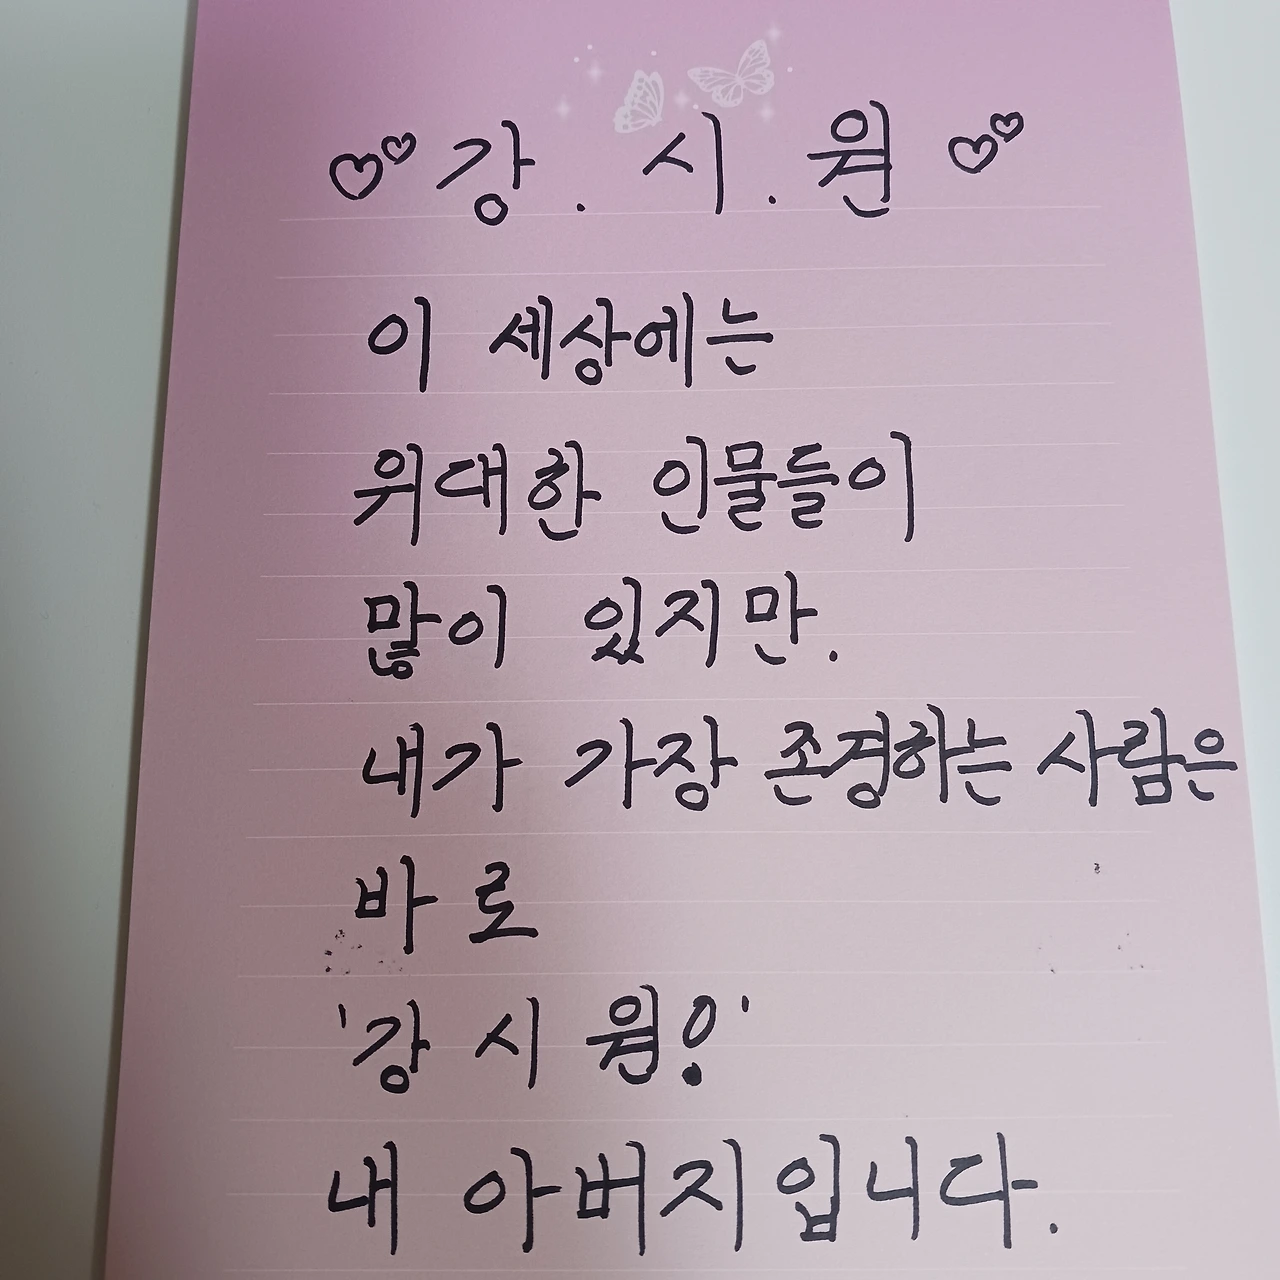 ♡♡강.시.원♡♡
이 세상에는
위대한 인물들이
많이 있지만.
내가 가장 존경하는 사람은
바로
'강시원!'
내 아버지입니다.